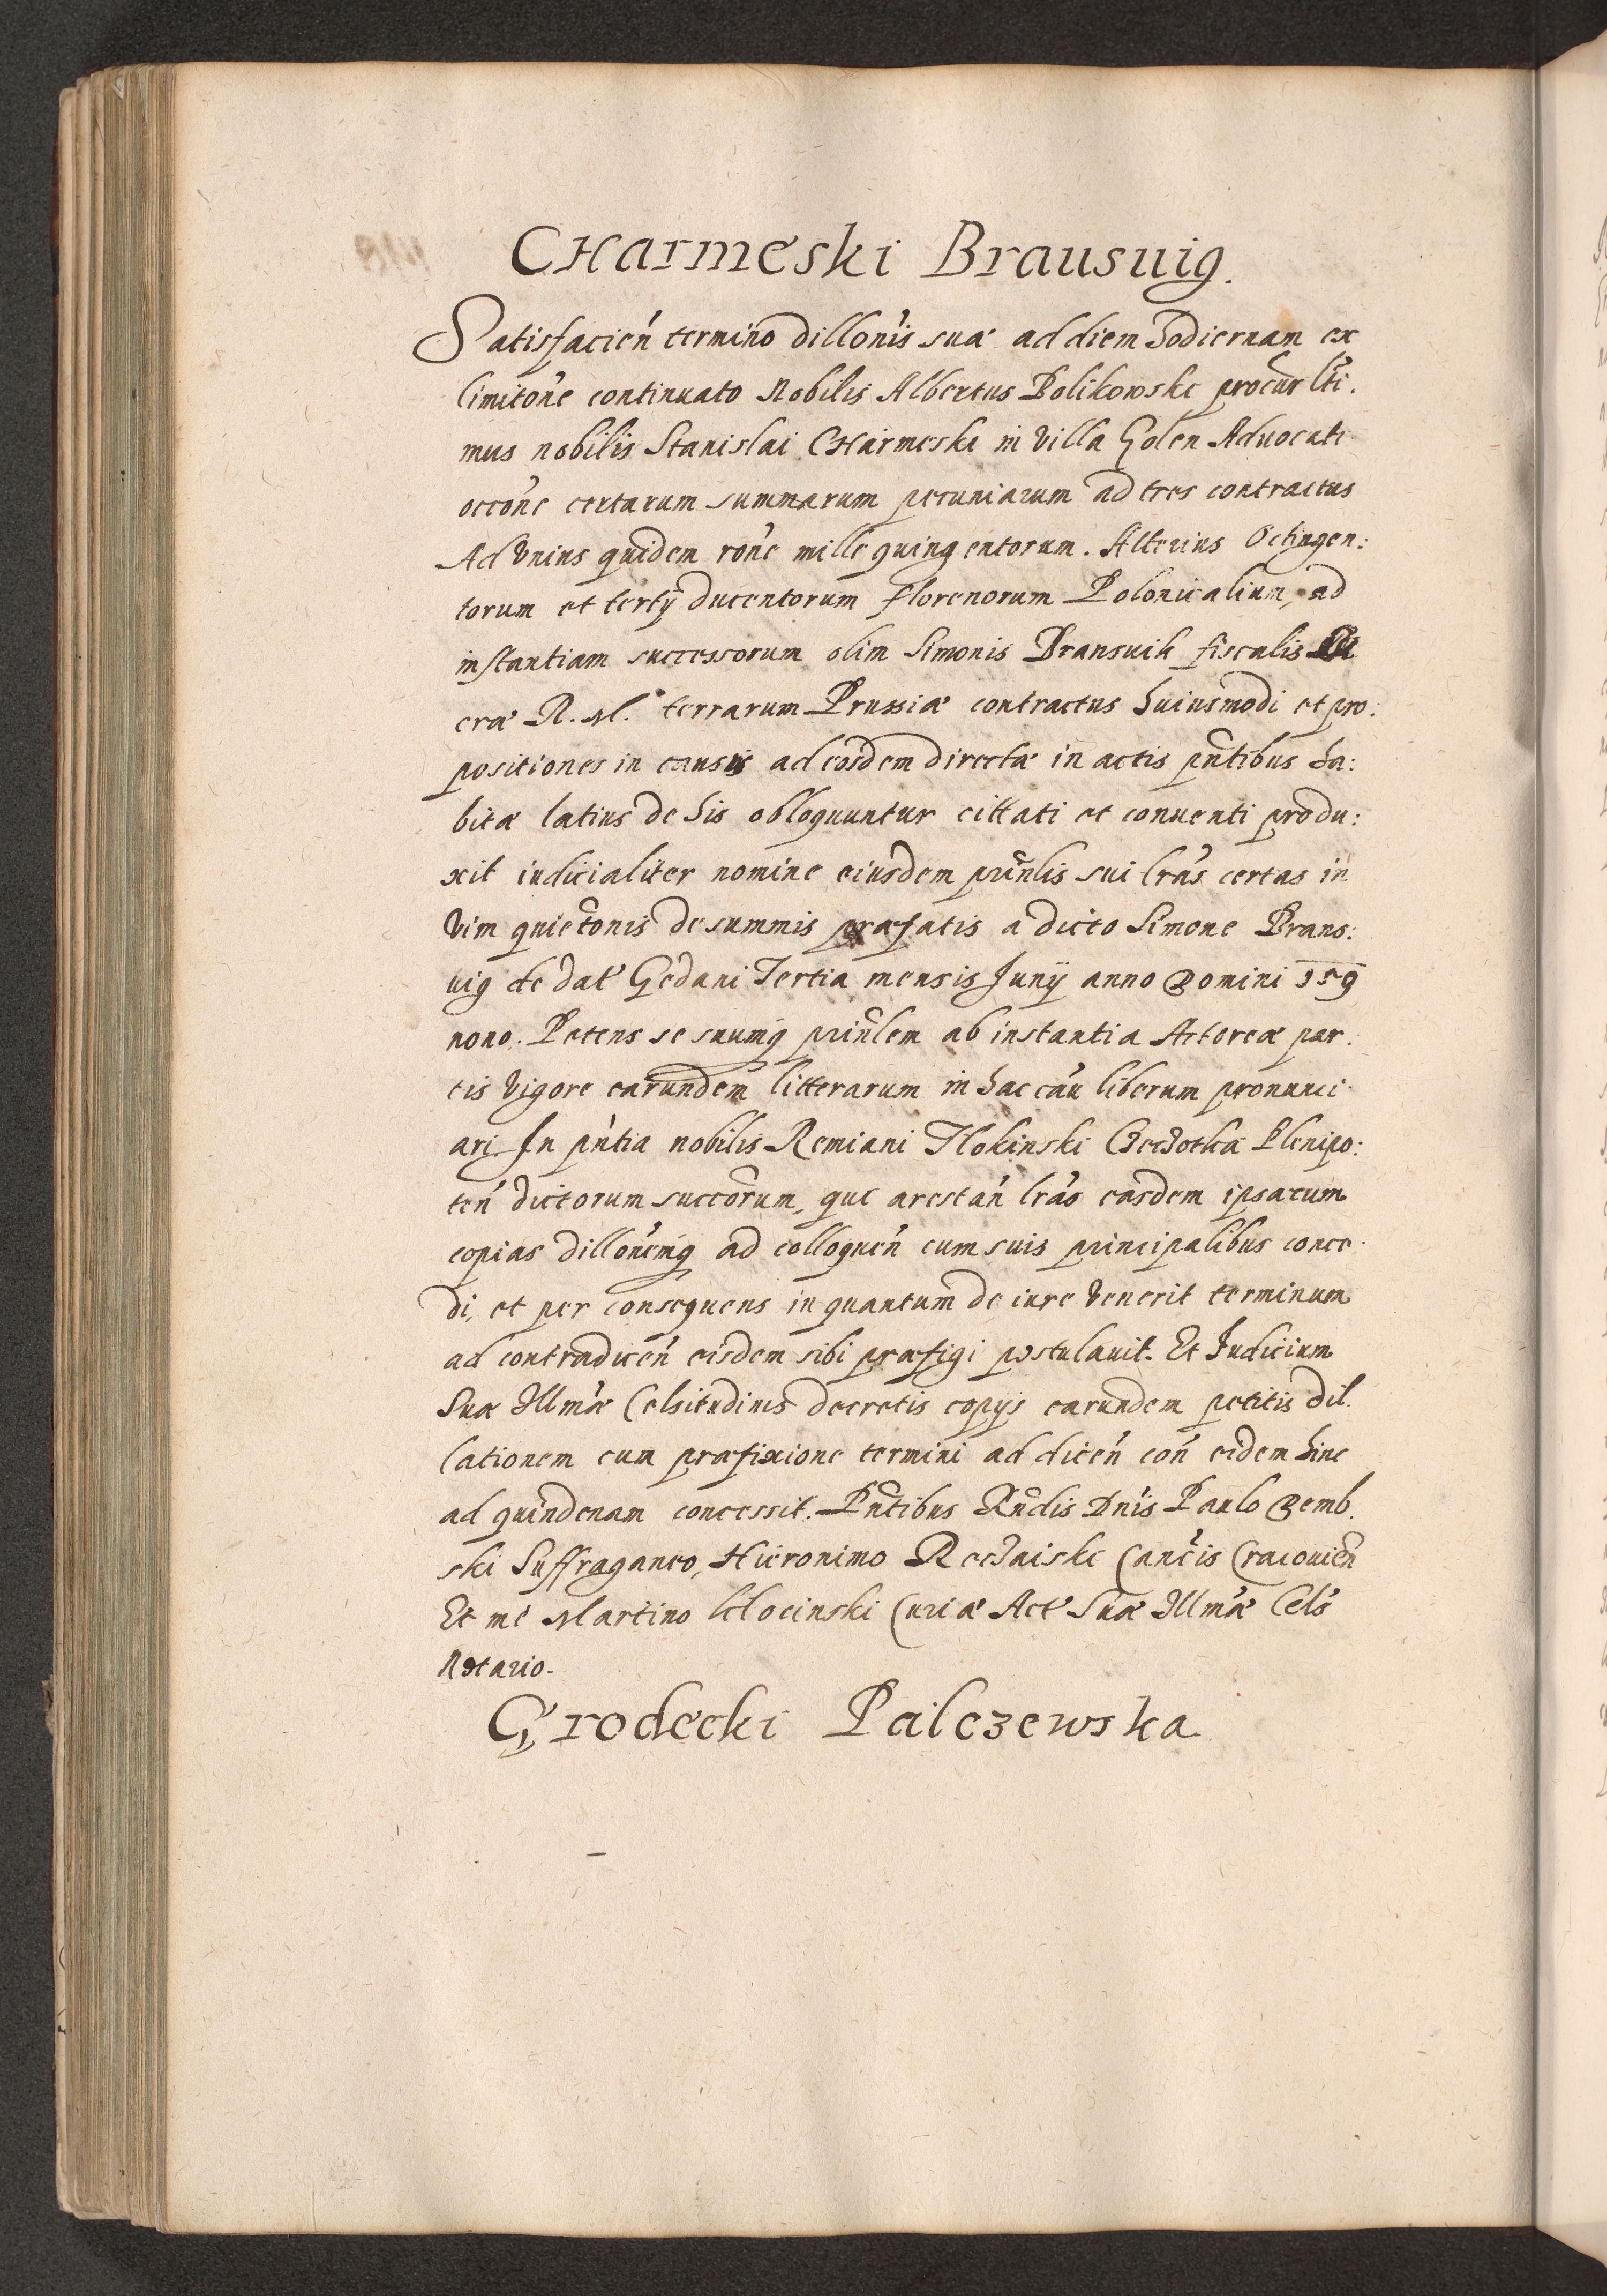 CHarmeski Brausuig.
Satisfacień termino dillońis suæ ad diem hodiernam ex
limitońe continuato Nobilis Albertus Polikowski procur̃ lt̃i.
mus nobilis Stanislai CHarmeski in Villa Golen Aduocati
occońe certarum summarum pecuniarum ad tres contractus
Ad Vnius quidem rońe mille quingentorum. Alterius Octingen:
torum et tertÿ ducentorum florenorum Polonicalium, ad
instantiam successorum olim Simonis Bransuik fiscalis
cræ R. M. terrarum Prussiæ contractus huiusmodi et pro:
positiones in causis ad eosdem directæ in actis pñtibus ha:
bitæ latius de his obloquuntur cittati et conuenti produ:
xit iudicialiter nomine eiusdem prinl̃is sui lrás certas in
Vim quietõnis de summis præfatis a dicto Simone Brans:
uig de dat' Gedani Tertia mensis Junÿ anno Domini 159
nono. Petens se suumq̃ prinl̃em ab instantia Actoreæ par.
tis Vigore earundem litterarum in hac caú liberum pronunci
ari. In pńtia nobilis Remiani Tlokinski Czeczotka Plenipo:
teń dictorum succõrum, qui arestań lrás easdem ipsarum
copias dillońemq̃ ad colloqueń cum suis principalibus conce.
di, et per consequens in quantum de iure Venerit terminum
ad contradiceń eisdem sibi præfigi postulauit. Et Judicium
Suæ Illmǽ Celsitudinis decretis copÿs earundem petitis dil.
lationem cum præfixione termini ad diceń coń eidem hinc
ad quindenam concessit. Pñtibus Rñdis Dńis Paulo Demb.
ski Suffraganeo, Hieronimo Reczaiski Cančis Cracouieñ
Et me Martino Clocinski Curiæ Act' Suæ Illmǽ Cels'
Notario.
Grodecki Palczewska